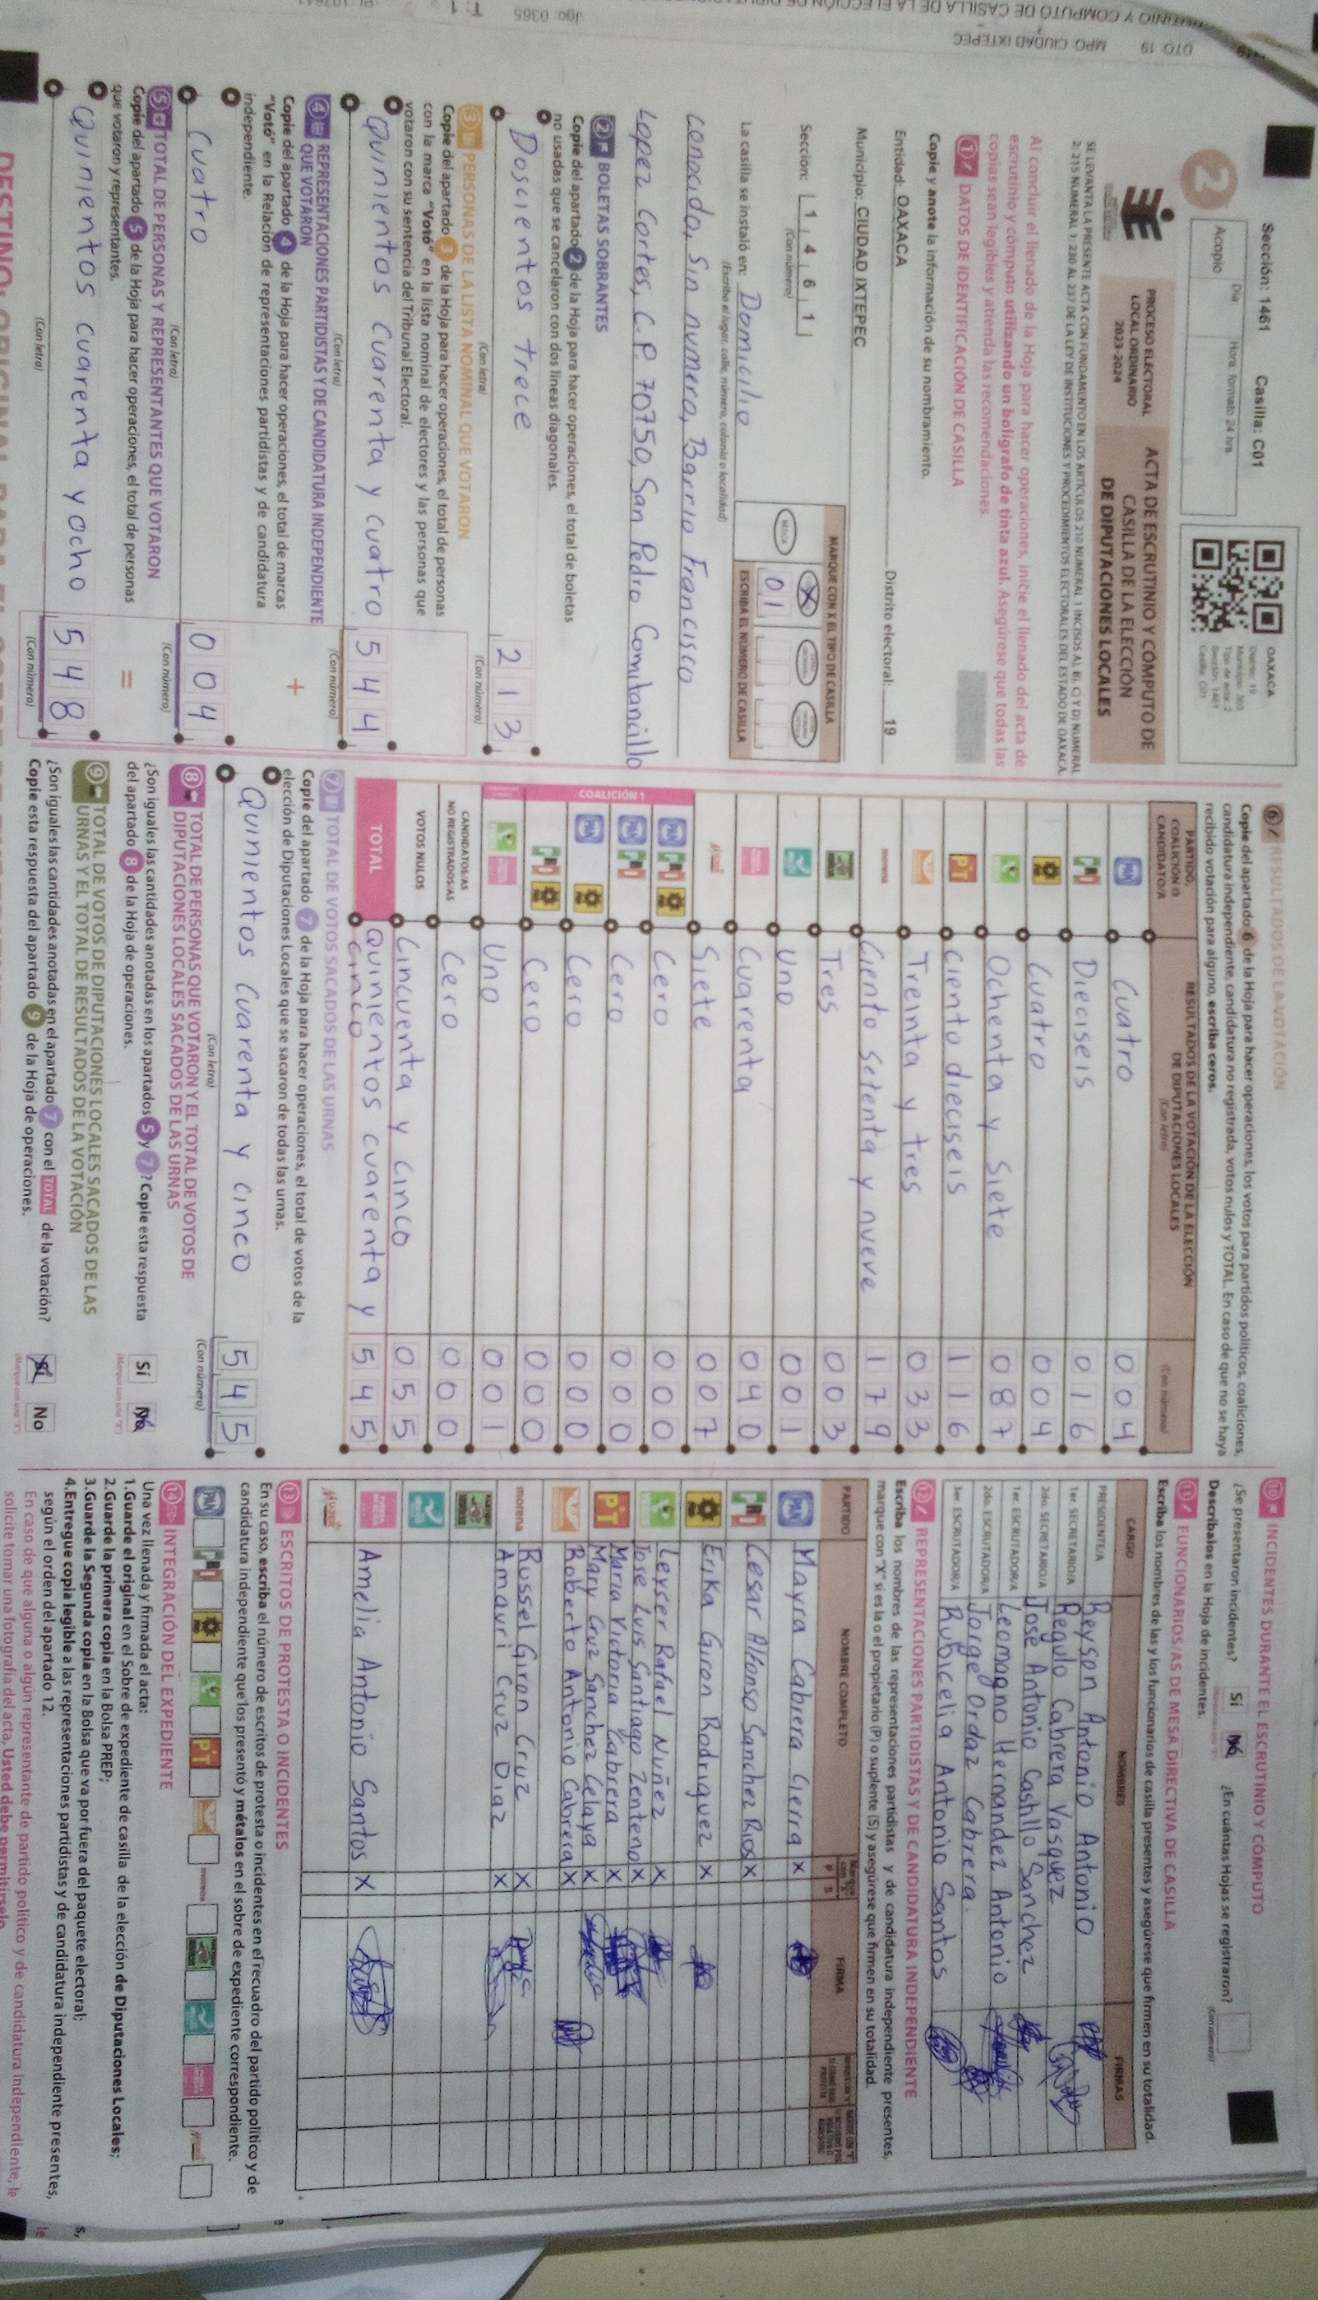 Sección: 1461 Casilla: C01
2
Día Hora: formato 24 hrs.
Acopio
OAXACA
PROCESO ELECTORAL
LOCAL ORDINARIO
2023-2024
ACTA DE ESCRUTINIO Y CÓMPUTO DE
CASILLA DE LA ELECCIÓN
DE DIPUTACIONES LOCALES
Al concluir el llenado de la Hoja para hacer operaciones, inicie el llenado del acta de
escrutinio y cómputo utilizando un bolígrafo de tinta azul. Asegúrese que todas las
copias sean legibles y atienda las recomendaciones.
1 DATOS DE IDENTIFICACIÓN DE CASILLA
Copie y anote la información de su nombramiento.
Entidad: OAXACA Distrito electoral: 19
Municipio: CIUDAD IXTEPEC
Sección: 1 4 6 1
(Con número)
MARQUE CON X EL TIPO DE CASILLA
01
ESCRIBA EL NÚMERO DE CASILLA
La casilla se instaló en: Domicilio
(Escriba el lugar, calle, número, colonia o localidad)
conocido, Sin numero, Barrio Francisco
Lopez Cortes, C.P. 70750, San Pedro Comitancillo
2 BOLETAS SOBRANTES
Copie del apartado 2 de la Hoja para hacer operaciones, el total de boletas
no usadas que se cancelaron con dos líneas diagonales.
Doscientos trece 2 1 3
(Con letra) (Con número)
3 PERSONAS DE LA LISTA NOMINAL QUE VOTARON
Copie del apartado 3 de la Hoja para hacer operaciones, el total de personas
con la marca "Votó" en la lista nominal de electores y las personas que
votaron con su sentencia del Tribunal Electoral.
Quinientos Cuarenta y cuatro 5 4 4
(Con letra) (Con número)
4 REPRESENTACIONES PARTIDISTAS Y DE CANDIDATURA INDEPENDIENTE
QUE VOTARON
Copie del apartado 4 de la Hoja para hacer operaciones, el total de marcas
"Votó" en la Relación de representaciones partidistas y de candidatura
independiente.
+
Cuatro 0 0 4
(Con letra) (Con número)
5 TOTAL DE PERSONAS Y REPRESENTANTES QUE VOTARON
Copie del apartado 5 de la Hoja para hacer operaciones, el total de personas
que votaron y representantes.
=
Quinientos cuarenta y ocho 5 4 8
(Con letra) (Con número)
6 RESULTADOS DE LA VOTACIÓN
Copie del apartado 6 de la Hoja para hacer operaciones, los votos para partidos políticos, coaliciones,
candidatura independiente, candidatura no registrada, votos nulos y TOTAL. En caso de que no se haya
recibido votación para alguno, escriba ceros.
PARTIDO,
COALICIÓN O
CANDIDATO/A
RESULTADOS DE LA VOTACIÓN DE LA ELECCIÓN
DE DIPUTACIONES LOCALES
(Con letra) (Con número)
PAN Cuatro 0 0 4
PRI Dieciseis 0 1 6
Cuatro 0 0 4
Ochenta y Siete 0 8 7
PT Ciento dieciseis 1 1 6
Treinta y tres 0 3 3
morena Ciento Setenta y nueve 1 7 9
Tres 0 0 3
Uno 0 0 1
Cuarenta 0 4 0
Siete 0 0 7
COALICIÓN 1
Cero 0 0 0
Cero 0 0 0
Cero 0 0 0
Cero 0 0 0
Uno 0 0 1
CANDIDATOS/AS
NO REGISTRADOS/AS Cero 0 0 0
VOTOS NULOS Cincuenta y Cinco 0 5 5
TOTAL Quinientos cuarenta y
Cinco 5 4 5
7 TOTAL DE VOTOS SACADOS DE LAS URNAS
Copie del apartado 7 de la Hoja para hacer operaciones, el total de votos de la
elección de Diputaciones Locales que se sacaron de todas las urnas.
Quinientos Cuarenta y cinco 5 4 5
(Con letra) (Con número)
8 TOTAL DE PERSONAS QUE VOTARON Y EL TOTAL DE VOTOS DE
DIPUTACIONES LOCALES SACADOS DE LAS URNAS
¿Son iguales las cantidades anotadas en los apartados 5 y 7? Copie esta respuesta
del apartado 8 de la Hoja de operaciones. Sí No
9 TOTAL DE VOTOS DE DIPUTACIONES LOCALES SACADOS DE LAS
URNAS Y EL TOTAL DE RESULTADOS DE LA VOTACIÓN
¿Son iguales las cantidades anotadas en el apartado 7 con el TOTAL de la votación?
Copie esta respuesta del apartado 9 de la Hoja de operaciones. Sí No
10 INCIDENTES DURANTE EL ESCRUTINIO Y CÓMPUTO
¿Se presentaron incidentes? Sí No ¿En cuántas Hojas se registraron?
Descríbalos en la Hoja de incidentes.
11 FUNCIONARIOS/AS DE MESA DIRECTIVA DE CASILLA
Escriba los nombres de las y los funcionarios de casilla presentes y asegúrese que firmen en su totalidad.
CARGO NOMBRES FIRMAS
PRESIDENTE/A Reyson Antonio Antonio
1er. SECRETARIO/A Regulo Cabrera Vasquez
2do. SECRETARIO/A Jose Antonio Castillo Sanchez
1er. ESCRUTADOR/A Leomagno Hernandez Antonio
2do. ESCRUTADOR/A Jorge Ordaz Cabrera.
3er. ESCRUTADOR/A Rubicelia Antonio Santos
12 REPRESENTACIONES PARTIDISTAS Y DE CANDIDATURA INDEPENDIENTE
Escriba los nombres de las representaciones partidistas y de candidatura independiente presentes,
marque con "X" si es la o el propietario (P) o suplente (S) y asegúrese que firmen en su totalidad.
PARTIDO NOMBRE COMPLETO P S FIRMA
PAN Mayra Cabrera Gierra X
PRI Cesar Alfonso Sanchez Rios X
Erika Giron Rodriguez X
Leyser Rafael Nuñez X
Jose Luis Santiago Zenteno X
PT Maria Victoria Cabrera X
Mary Cruz Sanchez Celaya X
Roberto Antonio Cabrera X
morena Russel Giron Cruz X
Amauri Cruz Diaz X
Amelia Antonio Santos X
13 ESCRITOS DE PROTESTA O INCIDENTES
En su caso, escriba el número de escritos de protesta o incidentes en el recuadro del partido político y de
candidatura independiente que los presentó y métalos en el sobre de expediente correspondiente.
14 INTEGRACIÓN DEL EXPEDIENTE
Una vez llenada y firmada el acta:
1.Guarde el original en el Sobre de expediente de casilla de la elección de Diputaciones Locales;
2.Guarde la primera copia en la Bolsa PREP;
3.Guarde la Segunda copia en la Bolsa que va por fuera del paquete electoral;
4.Entregue copia legible a las representaciones partidistas y de candidatura independiente presentes,
según el orden del apartado 12.
En caso de que alguna o algún representante de partido político y de candidatura independiente, le
solicite tomar una fotografía del acta, Usted debe permitírselo